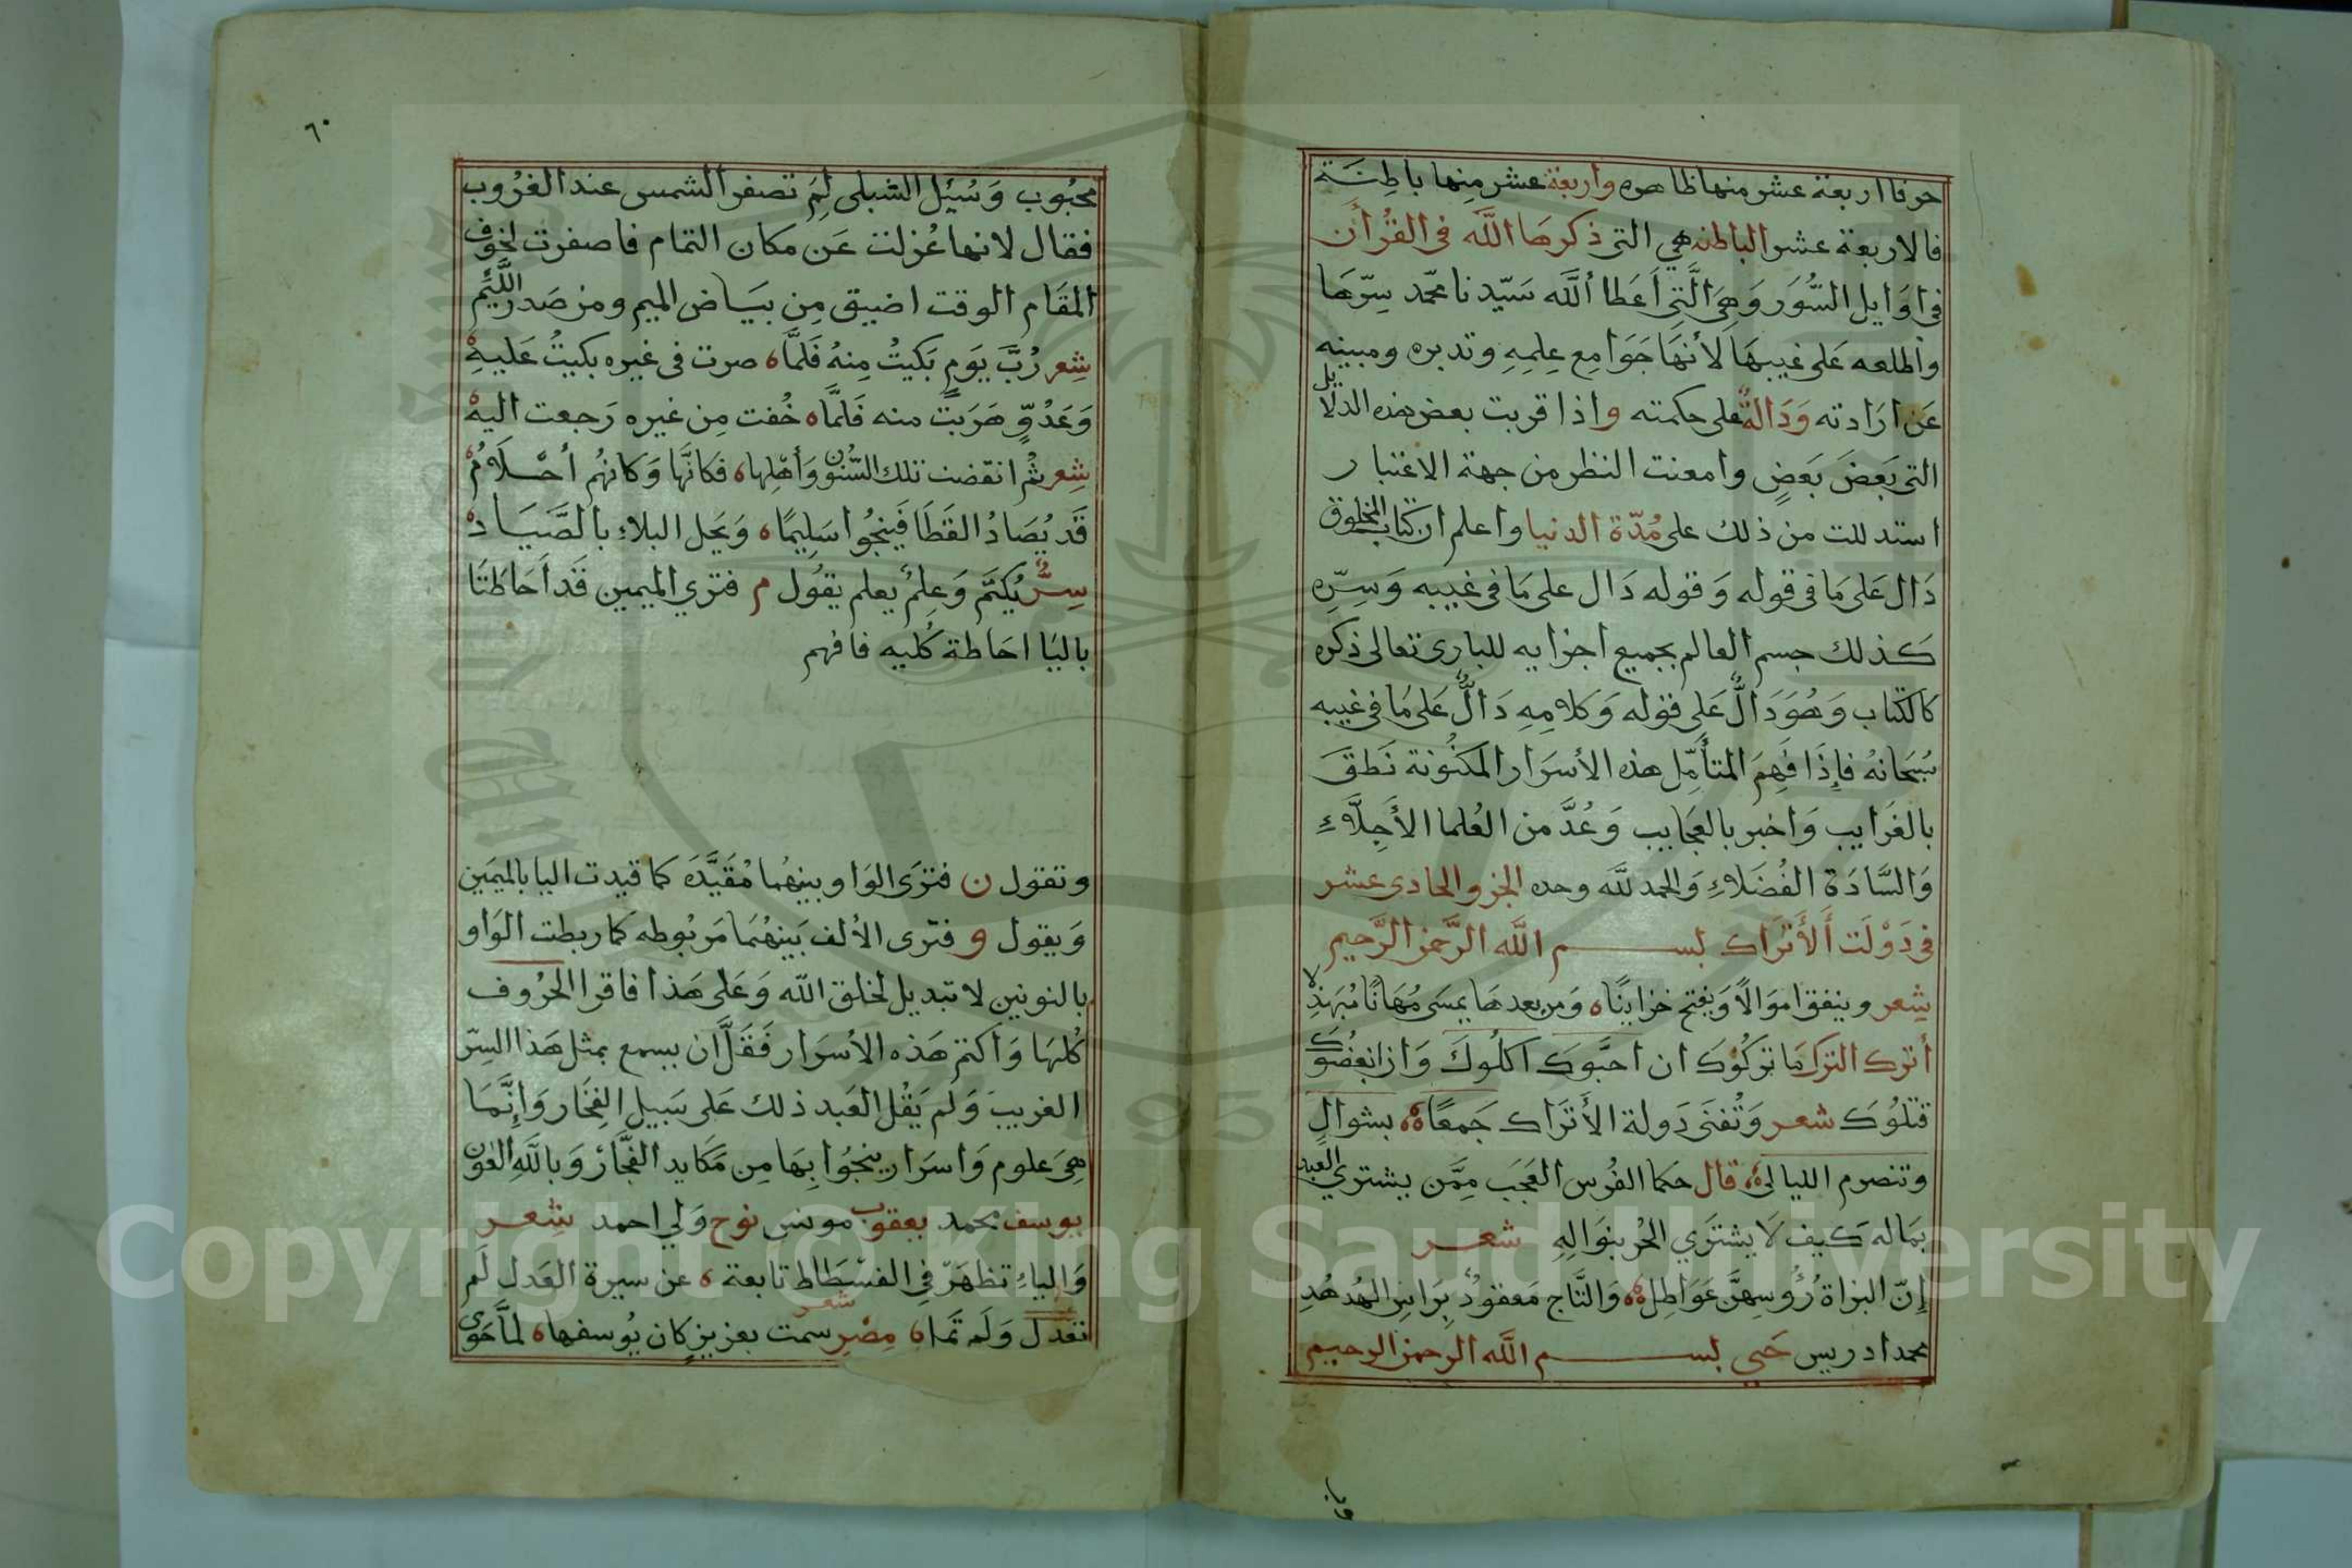 حرفا اربعة عشر منها ظاهره واربعة عشر مِنها باطِنَة
فالاربعة عشر الباطنه هي التى ذكرهَا اللَّه فى القُرأن
فى اوَايل السُّوَر وَهِىَ الَّتِى اَعَطا اللَّه سَيّدنا محمّد سِرّهَا
واطلعه عَلى غيبهَا لأنهَا جَوَامِع عِلمِهِ وتدبره ومبينه
عَن ارَادته وَدَالةٌ على حكمته واذا قربت بعض هذه الدلايل
التى بَعضَ بَعضٍ وامعنت النظر من جهة الاعتبار
استدللت من ذلك على مُدّة الدنيا واعلم ان كتاب المخلوق
دَال عَلى مَا فى قوله وَقوله دَال على مَا فى غيبه وَسِرّه
كذلك جسم العالم بجميع اجزايه للبارى تعالى ذكره
كالكتاب وَهُوَ دَالٌّ عَلى قوله وَكلامِهِ دَالٌّ عَلى مَا فى غيبه
سُبحَانهُ فإذَا فَهِمَ المتأمّل هذه الأسرَار المكنُونة نَطقَ
بالغَرايب وَاخبر بالعجَايب وَعُدَّ من العُلما الأَجِلَّاءِ
وَالسَّادَة الفُضَلاءِ وَالحمد للَّه وحده الجزو الحادى عشر
فى دَوْلَت أَلأَترَاك بســـم اللَّه الرَّحمن الرَّحيم
شِعر وينفق اموَالًا وَيفتح خزاينًا ه وَمن بعدهَا يمسَى مُهَانًا مُبَهذِلا
أترك الترك مَا تركُوك ان احبَّوك اكلُوكَ وَان ابغضُوك
قتلُوكَ شعر وَتُفنَى دَولة الأَترَاك جَمعًا ه بشوالٍ
وتنصرم الليالى ه قال حكما الفُرس العَجَب مِمَّن يشتري العبد
بمَاله كيف لَا يشترَي الحُر بنوَالِهِ شعـر
إنّ البزاة رُؤُوسهنَّ عَوَاطِل ه وَالتَّاج مَعقودٌ برَاسِ الهُدهُدِ
محمد ادريس حَيى بســـم اللَّه الرحمن الرحيم
٦٠
محبُوب وَسُئِل الشبلى لِمَ تصفر الشمس عند الغرُوب
فقال لانها عُزلت عَن مكان التمام فاصفرت لخوف
المقَام الوقت اضيق مِن بيَاض الميم ومن صَدر اللَّئيم
شِعر رُبَّ يَومٍ بَكيتُ مِنهُ فَلمَّا ه صرت فى غيره بكيتُ عَليهِ
وَعَدُوٍّ هَرَبتُ منه فَلمَّا ه خُفت مِن غيره رَجعت اليه
شِعر ثُم انقضت تلك السّنون وَأهْلها ه فكانَّها وَكانهُم أحْلَامُ
قَد يُصَادُ القَطَا فَينجُوا سَلِيمًا ه وَيحل البلاء بالصَّيَادْ
سِرٌّ يُكتَم وَعِلمٌ يعلم يقُول م فترى الميمين قَد احَاطتَا
باليَا احَاطة كُليه فافهم
وتقول ن فترَى الوَاو بينهُما مُقَيَّدَه كما قيدت اليا بالميمَين
وَيقول و فترى الألف بَينهُمَا مَربُوطه كما ربطت الوَاو
بالنونين لا تبديل لخلق اللَّه وَعَلى هَذا فاقرا الحرُوف
كُلهَا وَاكتم هَذه الأسرَار فَقَلَّ ان يسمع بمثل هَذا السِرّ
الغريبَ وَلَم يَقُل العَبد ذلك عَلى سَبيل الفِخَار وَإنَّمَا
هِىَ علوم وَاسرَار ينجُوا بِهَا مِن مَكايد الفجَّار وَباللَّهِ العَون
يوسف محمد يعقوب مونس نوح وَلي احمد شِعـر
وَالياءِ تظهَرّ فِي الفسْطَاط تابعة ه عن سيرة العَدل لَم
تعْدل وَلَم تمَا ه شعر مِصْر سمت بعزيزٍ كان يُوسفها ه لمَّا حَوى
Copyright © King Saud University